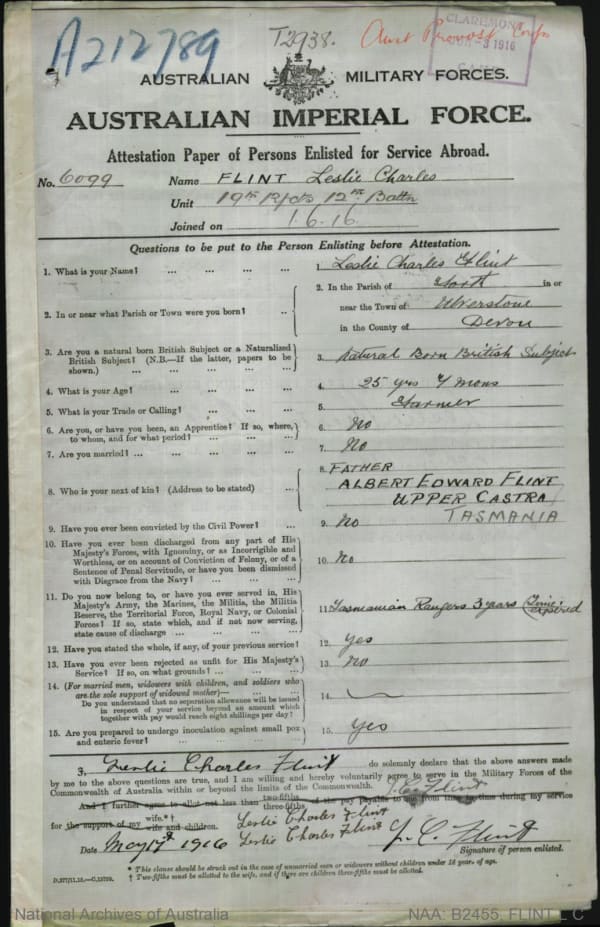 A212789
T2938.
Aust Provost Corps
CLAREMONT
3 1916
CAMP
AUSTRALIAN MILITARY FORCES.
AUSTRALIAN IMPERIAL FORCE.
Attestation Paper of Persons Enlisted for Service Abroad.
No. 6099 Name FLINT Leslie Charles
Unit 19th R/cts 12th Battn
Joined on 1.6.16.
Questions to be put to the Person Enlisting before Attestation.
1. What is your Name? ... ... ... ... 1. Leslie Charles Flint
2. In or near what Parish or Town were you born? ... 2. In the Parish of North in or
near the Town of Ulverstone
in the County of Devon
3. Are you a natural born British Subject or a Naturalized
British Subject? (N.B.—If the latter, papers to be
shown.) ... ... ... ... 3. Natural Born British Subject
4. What is your Age? ... ... ... ... 4. 25 yrs 7 mons
5. What is your Trade or Calling? ... ... ... 5. Farmer
6. Are you, or have you been, an Apprentice? If so, where,
to whom, and for what period? ... ... ... 6. No
7. Are you married? ... ... ... ... 7. No
8. Who is your next of kin? (Address to be stated) ... 8. FATHER
ALBERT EDWARD FLINT
UPPER CASTRA
TASMANIA
9. Have you ever been convicted by the Civil Power? ... 9. No
10. Have you ever been discharged from any part of His
Majesty's Forces, with Ignominy, or as Incorrigible and
Worthless, or on account of Conviction of Felony, or of a
Sentence of Penal Servitude, or have you been dismissed
with Disgrace from the Navy? ... ... ... 10. No
11. Do you now belong to, or have you ever served in, His
Majesty's Army, the Marines, the Militia, the Militia
Reserve, the Territorial Force, Royal Navy, or Colonial
Forces? If so, state which, and if not now serving,
state cause of discharge ... ... ... 11. Tasmanian Rangers 3 years (Time expired
12. Have you stated the whole, if any, of your previous service? 12. Yes
13. Have you ever been rejected as unfit for His Majesty's
Service? If so, on what grounds? ... ... 13. No
14. (For married men, widowers with children, and soldiers who
are the sole support of widowed mother)—
Do you understand that no separation allowance will be issued
in respect of your service beyond an amount which
together with pay would reach eight shillings per day? 14.
15. Are you prepared to undergo inoculation against small pox
and enteric fever? ... ... ... ... 15. Yes
I, Leslie Charles Flint do solemnly declare that the above answers made
by me to the above questions are true, and I am willing and hereby voluntarily agree to serve in the Military Forces of the
Commonwealth of Australia within or beyond the limits of the Commonwealth. L. C. Flint
And I further agree to allot not less than two-fifths three-fifths of the pay payable to me from time to time during my service
for the support of my wife.*† wife and children. Leslie Charles Flint
Date May 17th 1916 Leslie Charles Flint L. C. Flint
Signature of person enlisted.
* This clause should be struck out in the case of unmarried men or widowers without children under 18 years of age.
† Two-fifths must be allotted to the wife, and if there are children three-fifths must be allotted.
National Archives of Australia NAA: B2455, FLINT L C